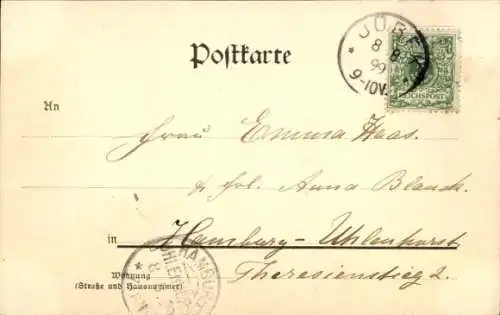 JÜBEK
8 8
99
9-10V.
REICHSPOST
Postkarte
An
Frau Emma Haas.
& frl. Anna Blanck.
in Hamburg-Uhlenhorst
Theresienstieg 2.
Wohnung
(Straße und Hausnummer)
HAMBURG